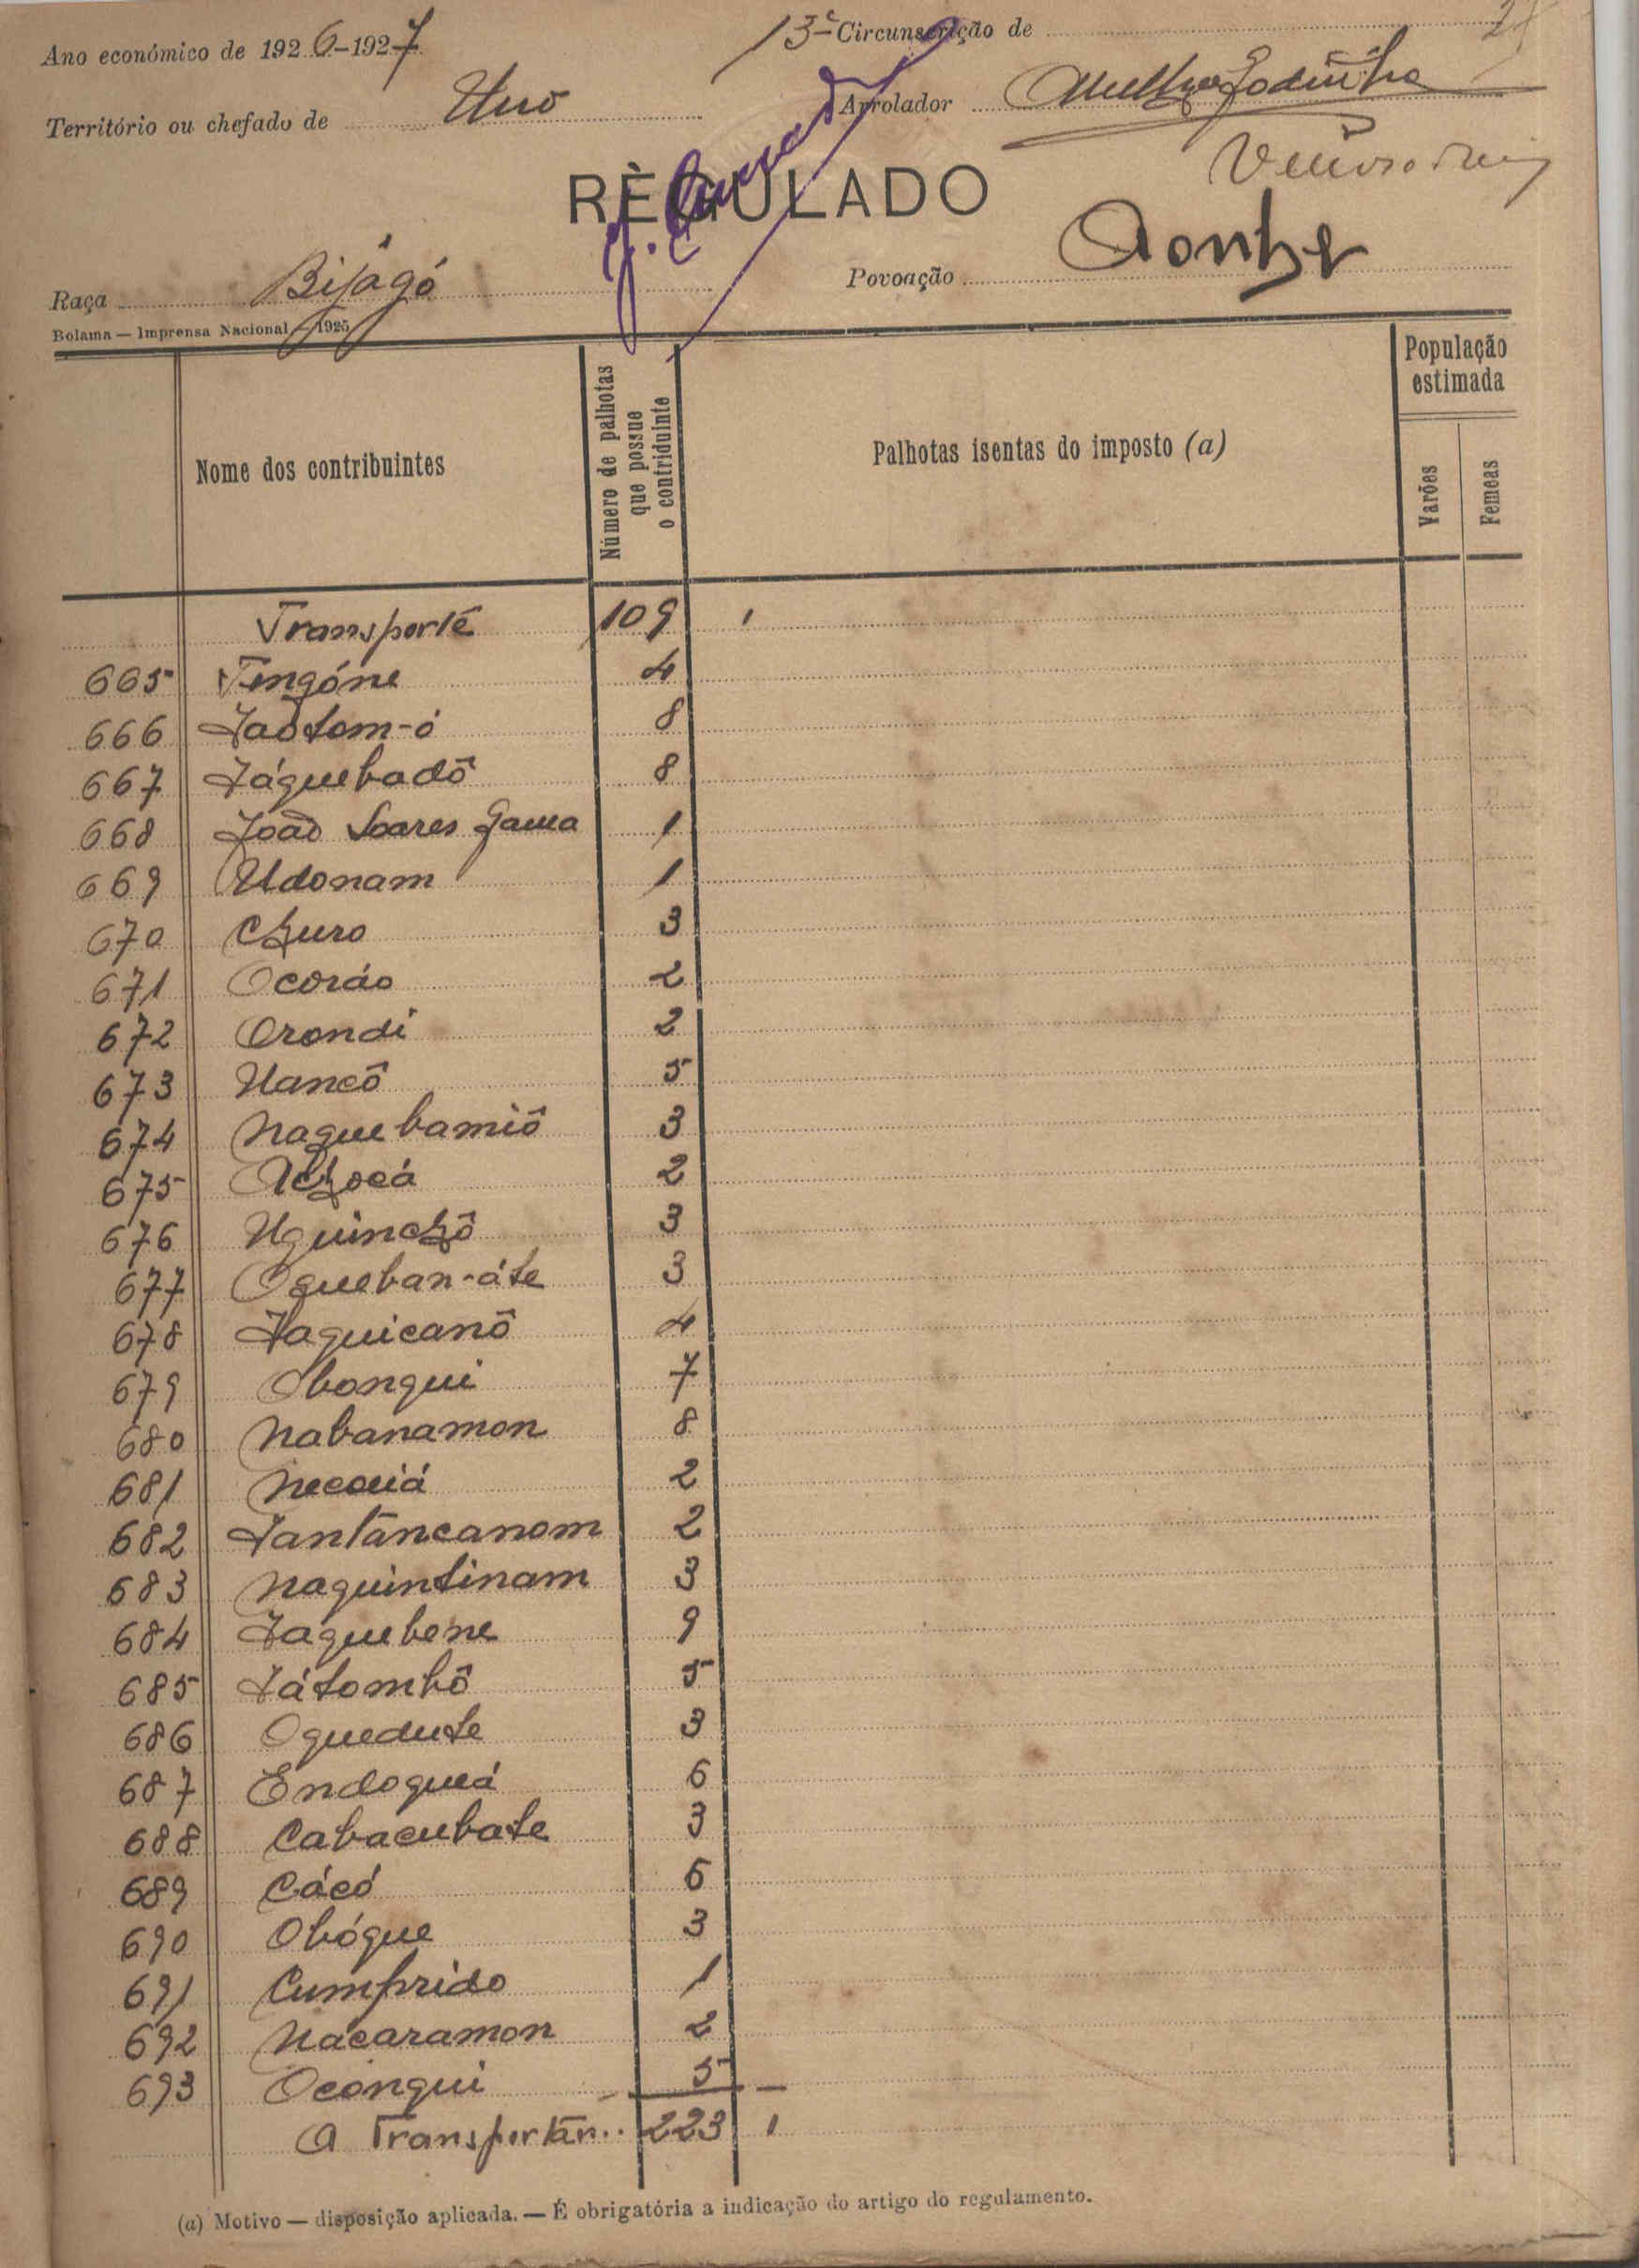 Ano económico de 1926-1927
13ª Circunscrição de
Território ou chefado de Uno
Arrolador
RÈGULADO
Raça Bijagó
Povoação
Bolama — Imprensa Nacional — 1925
Nome dos contribuintes
Número de palhotas que possue o contriduinte
Palhotas isentas do imposto (a)
População estimada
Varões
Femeas
Transporte 109 1
665 Tengóne 4
666 Jaõtom-ó 8
667 Jáquebadô 8
668 João Soares Gama 1
669 Udonam 1
670 Churo 3
671 Ocoráo 2
672 Orondi 2
673 Uancô 5
674 Naquebamiô 3
675 Achocá 2
676 Uguinchô 3
677 Oqueban-áte 3
678 Jaquicanô 4
679 Obongui 7
680 Nabanamon 8
681 2
682 Jantäncanom 2
683 Naquintinam 3
684 Jaquebene 9
685 Játombô 5
686 Oquedute 3
687 Endoqueá 6
688 Cabacubate 3
689 Cácó 6
690 Obógue 3
691 Cumprido 1
692 Nacaramon 2
693 Ocongui 5
A Transportar.. 223 1
(a) Motivo — disposição aplicada. — É obrigatória a indicação do artigo do regulamento.